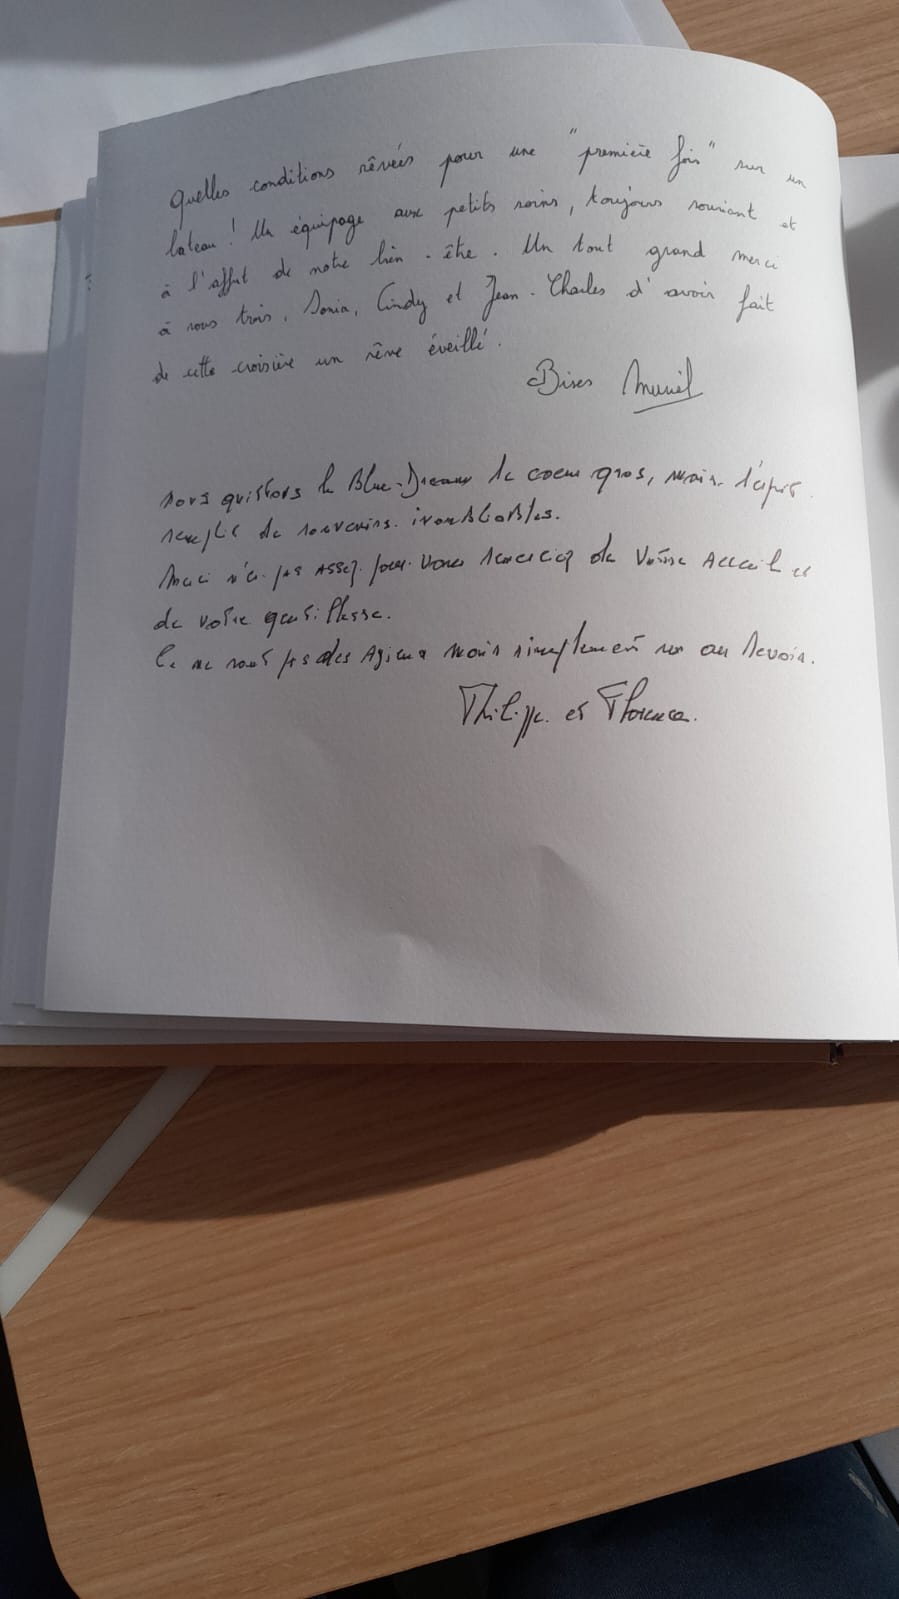 Quelles conditions rêvées pour une "première fois" sur un
bateau ! Un équipage aux petits soins, toujours souriant et
à l'affut de notre bien-être. Un tout grand merci
à vous trois, Sonia, Cindy et Jean-Charles d'avoir fait
de cette croisière un rêve éveillé.
Bises Muriel
Nous quittons le Blue-Dream le coeur gros, mais l'esprit
remplit de souvenirs inoubliables.
Merci n'est pas assez pour vous remerciez de votre accueil et
de votre gentillesse.
Ce ne sont pas des Adieux mais simplement un au Revoir.
Philippe et Florence.